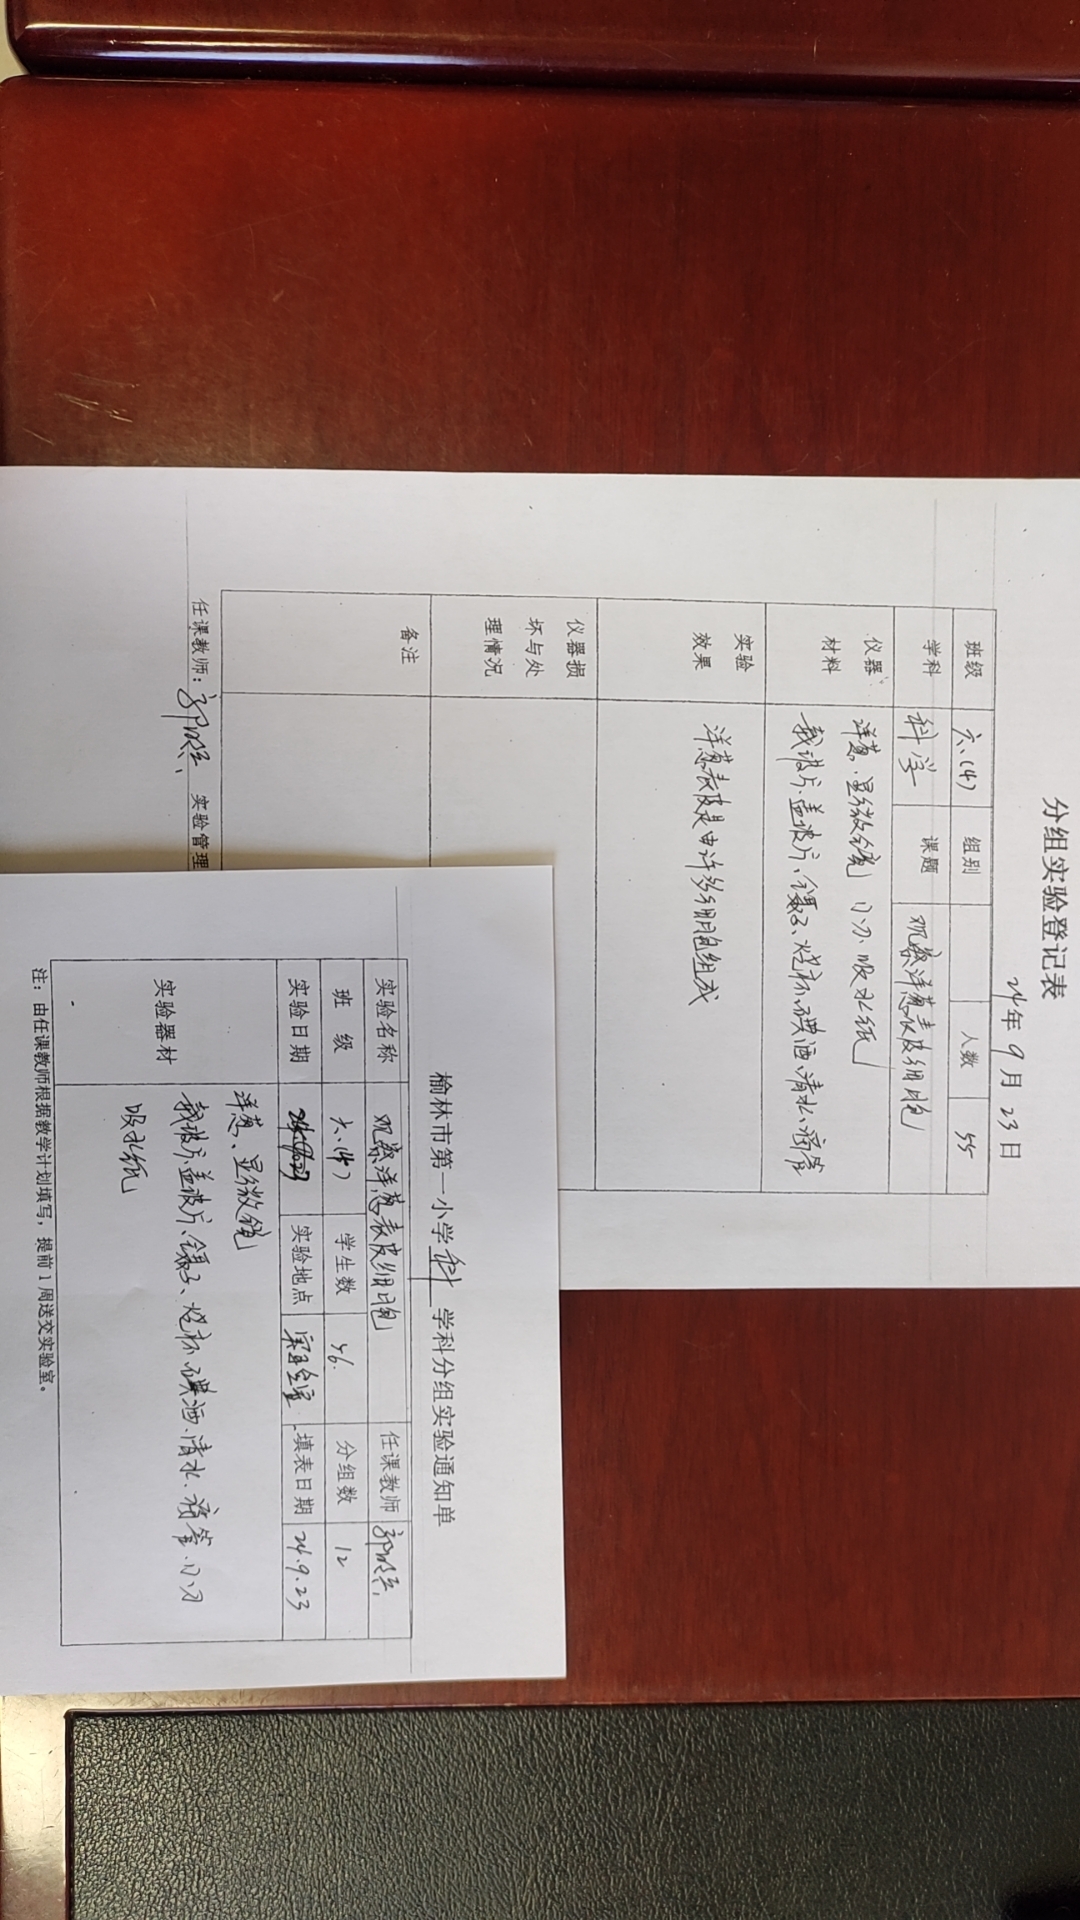 分组实验登记表
24年9月23日
班级 六、(4) 组别 人数 55
学科 科学 课题 观察洋葱表皮细胞
仪器材料 洋葱、显微镜 小刀、吸水纸
载玻片、盖玻片、镊子、烧杯、碘酒、清水、滴管
实验效果 洋葱表皮是由许多细胞组成
仪器损坏与处理情况
备注
任课教师: 实验管理
榆林市第一小学科学科分组实验通知单
实验名称 观察洋葱表皮细胞 任课教师
班级 六、(4) 学生数 分组数 12
实验日期 实验地点 实验室 填表日期 24.9.23
实验器材 洋葱、显微镜
载玻片、盖玻片、镊子、烧杯、碘酒、清水、滴管、小刀
吸水纸
注：由任课教师根据教学计划填写，提前1周送交实验室。